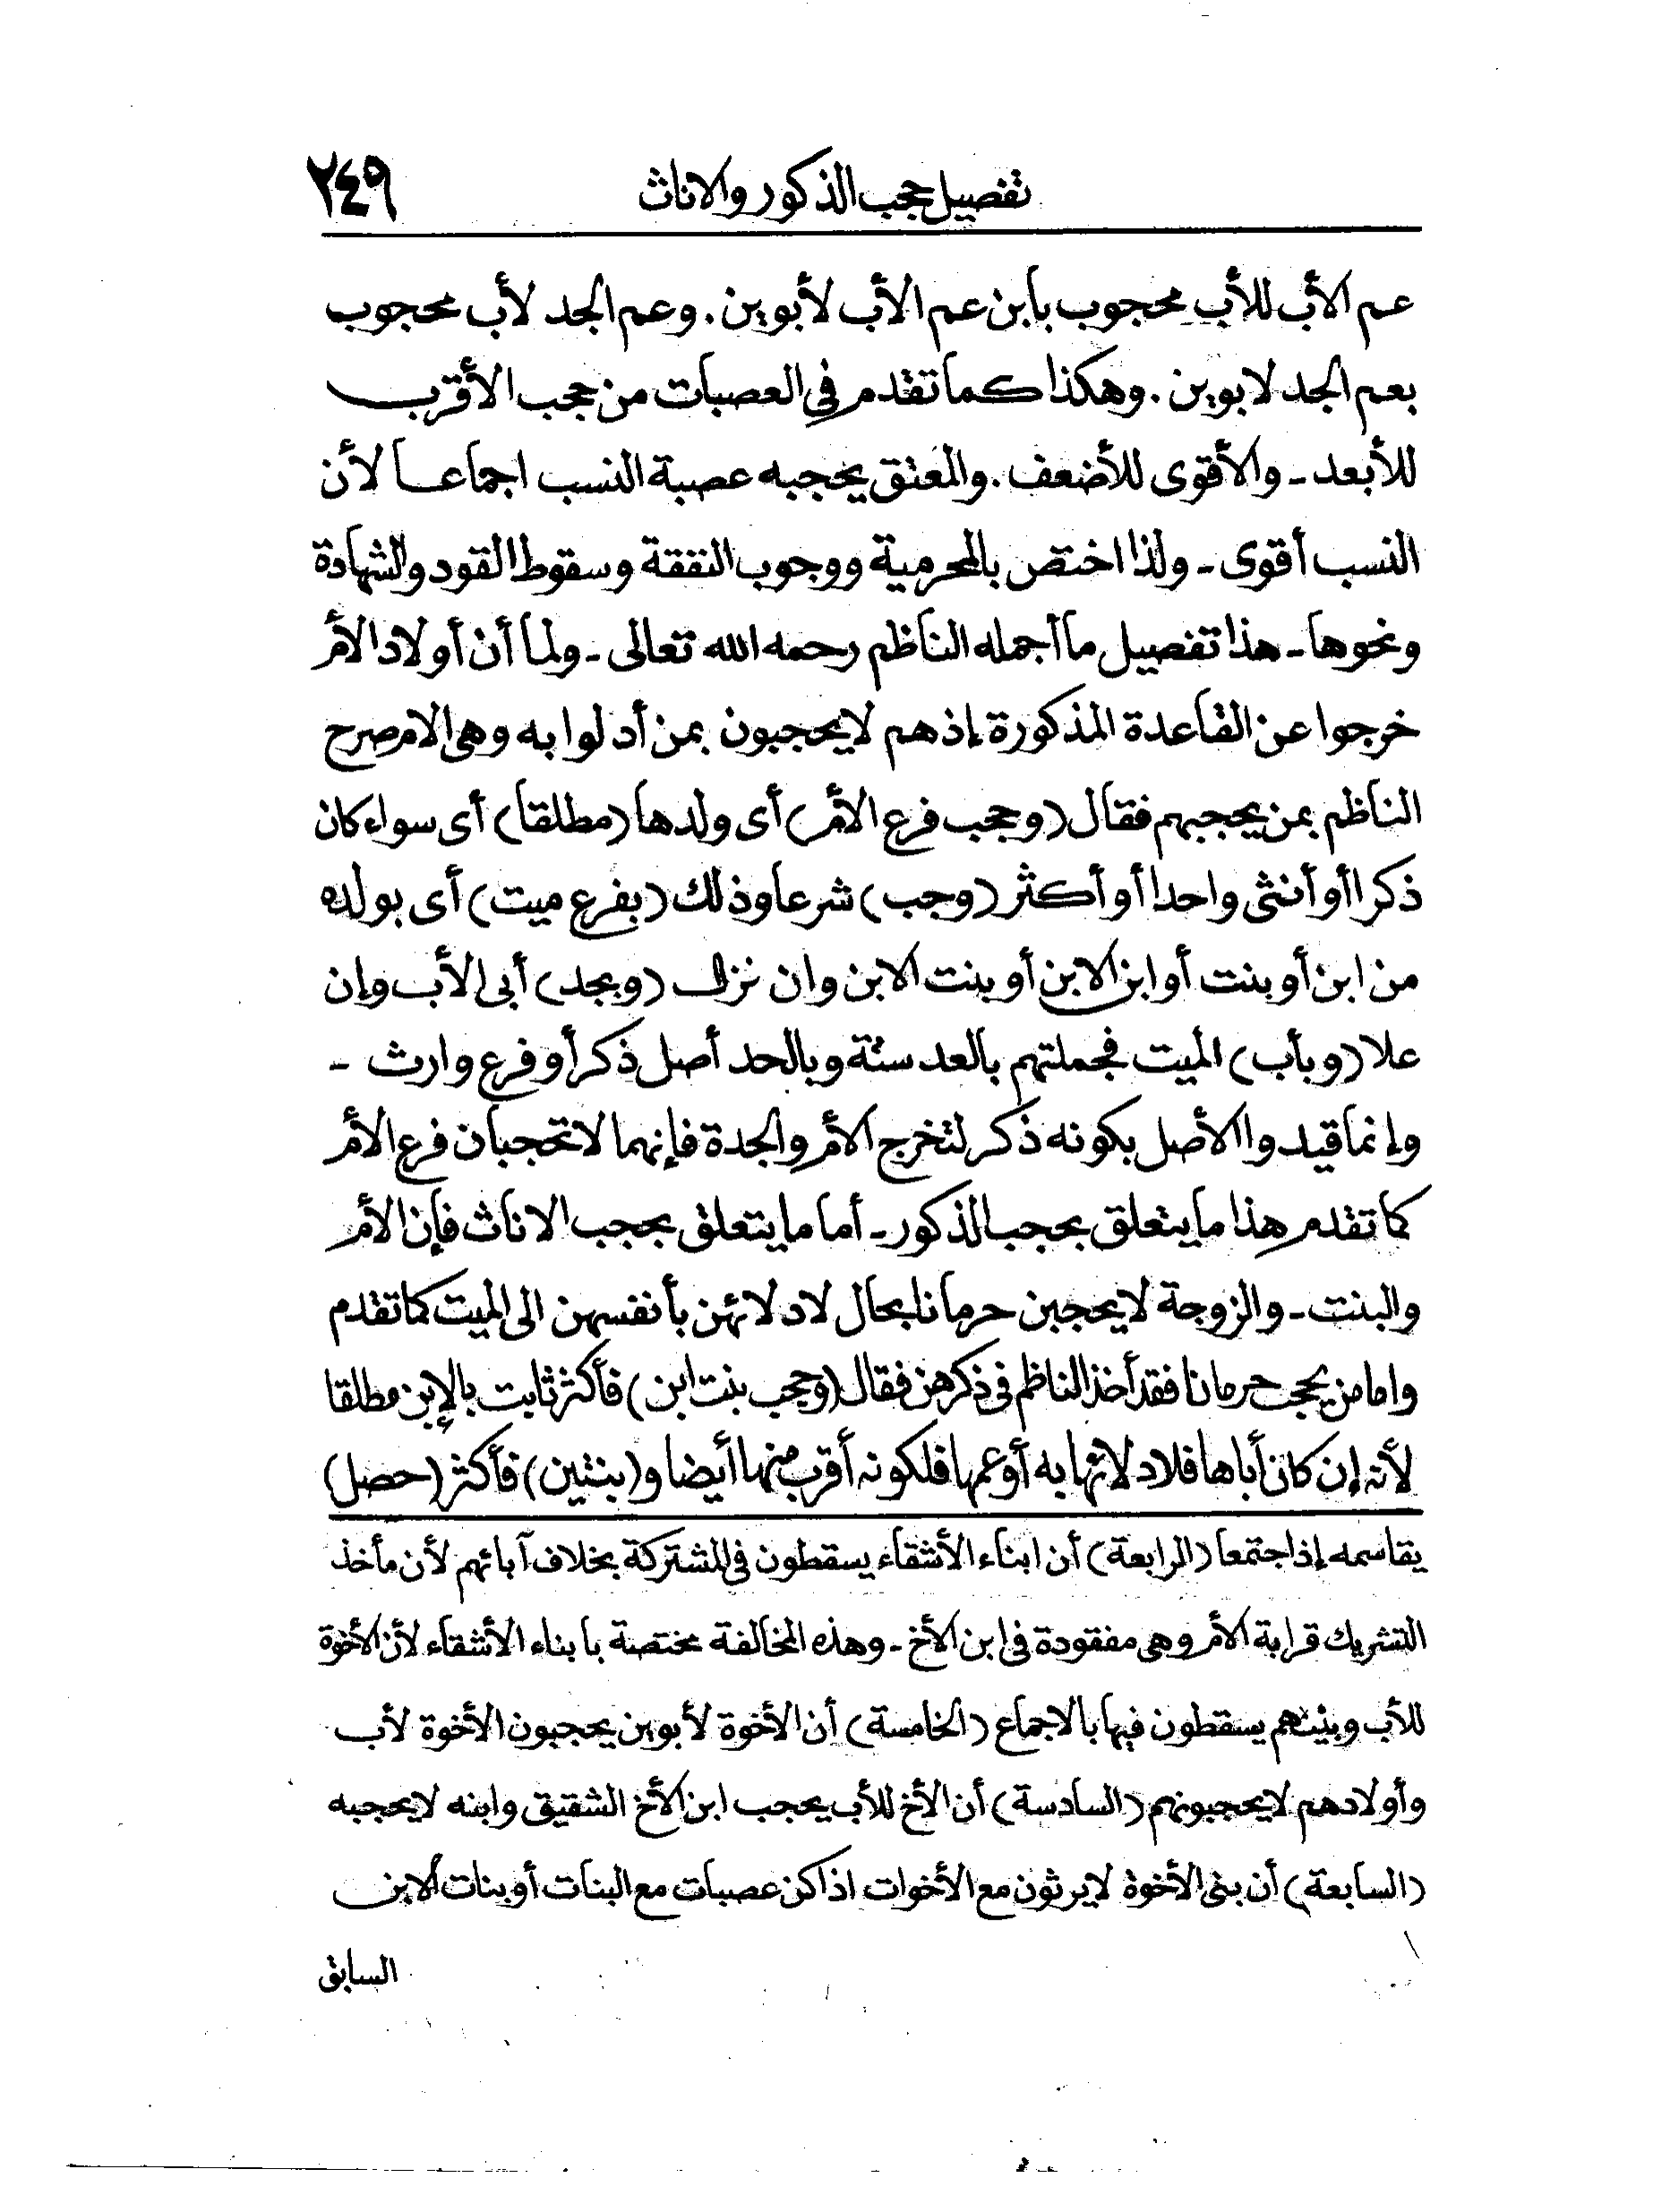 تفصيل حجب الذكور والاناث ٢٤٩
عم الأب للأب محجوب بابن عم الأب لأبوين . وعم الجد لأب محجوب
بعم الجد لابوين . وهكذا كما تقدم في العصبات من حجب الأقرب
للأبعد - والأقوى للأضعف . والمعتق يحجبه عصبة النسب اجماعا لأن
النسب أقوى - ولذا اختص بالمحرمية ووجوب النفقة وسقوط القود والشهادة
ونحوها - هذا تفصيل ما أجمله الناظم رحمه الله تعالى - ولما أن أولاد الأم
خرجوا عن القاعدة المذكورة إذهم لايحجبون بمن أدلوا به وهى الام صرح
الناظم بمن يحجبهم فقال (وحجب فرع الأم) أى ولدها (مطلقا) أى سواء كان
ذكرا أو أنثى واحدا أو أكثر (وجب) شرعا وذلك (بفرع ميت) أى بولده
من ابن أو بنت أو ابن الابن أو بنت الابن وان نزل (وبجد) أبى الأب وإن
علا (وبأب) الميت فجملتهم بالعد ستة وبالحد أصل ذكر أو فرع وارث -
وإنما قيدوا الأصل بكونه ذكر لتخرج الأم والجدة فإنهما لاتحجبان فرع الأم
كما تقدم هذا ما يتعلق بحجب الذكور - أما ما يتعلق بحجب الاناث فإن الأم
والبنت - والزوجة لايحجبن حرمانا بحال لادلائهن بأنفسهن الى الميت كما تقدم
واما من يحجب حرمانا فقد أخذ الناظم فى ذكرهن فقال (وحجب بنت ابن) فأكثر ثابت بالإبن مطلقا
لأنه إن كان أباها فلادلائها به أو عمها فلكونه أقرب منها أيضا و(بنتين) فأكثر (حصل)
يقاسمه إذا جتمعا (الرابعة) أن ابناء الأشقاء يسقطون فى المشتركة بخلاف آبائهم لأن مأخذ
التشريك قرابة الأم وهى مفقودة فى ابن الأخ - وهذه المخالفة مختصة بابناء الأشقاء لأن الأخوة
للأب وبنيهم يسقطون فيها بالاجماع (الخامسة) أن الأخوة لأبوين يحجبون الأخوة لأب
وأولادهم لايحجبونهم (السادسة) أن الأخ للأب يحجب ابن الأخ الشقيق وابنه لايحجبه
(السابعة) أن بنى الأخوة لايرثون مع الأخوات اذاكن عصبات مع البنات أو بنات الابن
السابق